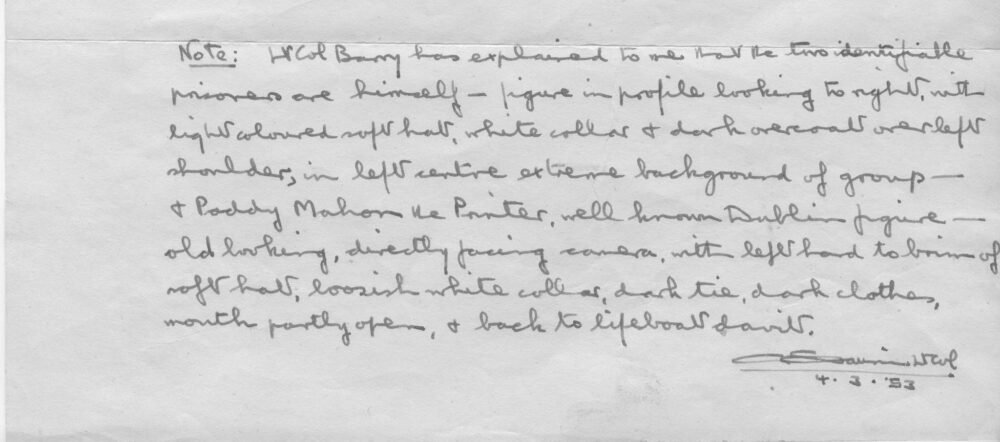 Note: Lt Col Barry has explained to me that the two identifiable
prisoners are himself — figure in profile looking to right, with
light coloured soft hat, white collar & dark overcoat over left
shoulder, in left centre extreme background of group —
& Paddy Mahon the Printer, well known Dublin figure —
old looking, directly facing camera, with left hand to brim of
soft hat, loosish white collar, dark tie, dark clothes,
mouth partly open, & back to lifeboat davit.
Lt Col
4.3.'53